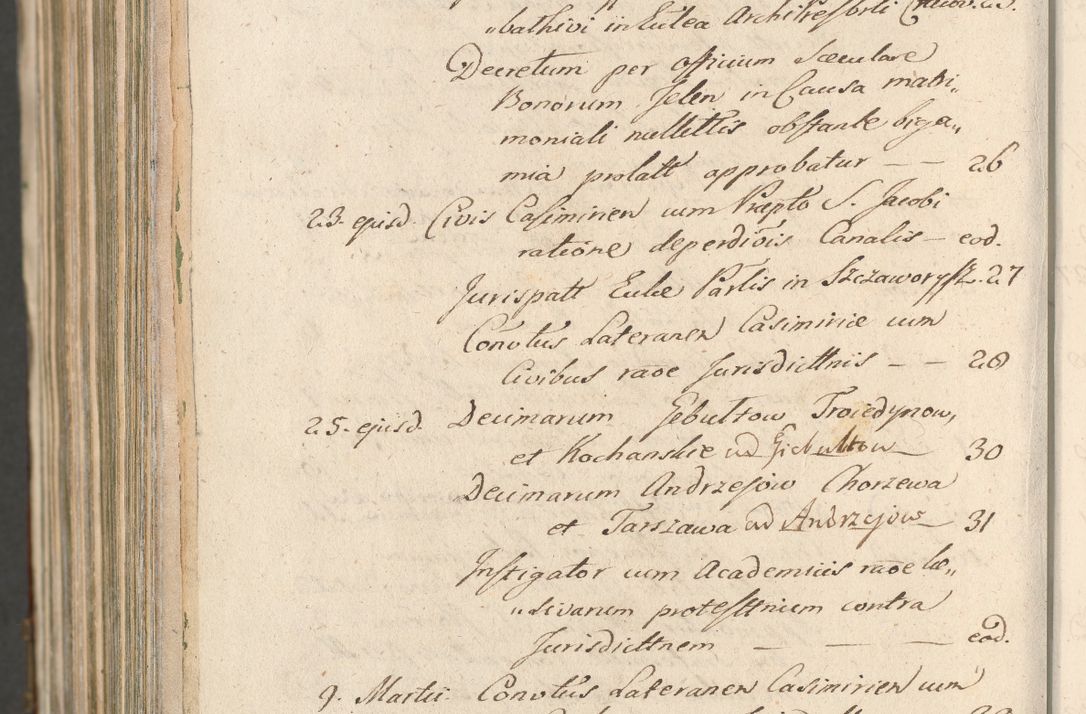 „bathivi in Ecclea Archipresbrli Cracov. 25.
Decretum per officium Sæculare
Bonorum Jelen in Causa matri„
moniali nullettis obstante biga„
mia prolatt approbatur — — 26
23. ejusd. Civis Casimirien cum Præpto S. Jacobi
ratione deperdiois Canalis — eod.
Jurispatt Eccle Partis in Szczaworyſz. 27
Convtus Lateranen Casimiriæ cum
Civibus raoe Jurisdicttnis — — 28
25. ejusd. Decimarum Gebultow Troiedynow,
et Kochanskie ad Giebultow — 30
Decimarum Andrzejow Chorzewa
et Tarszawa ad Andrzejow — 31
Instigator cum Academiis raoe læ„
„sivarum protesttnium contra
Jurisdicttnem — — — eod.
9. Martii Convtus Lateranen Casimirien cum